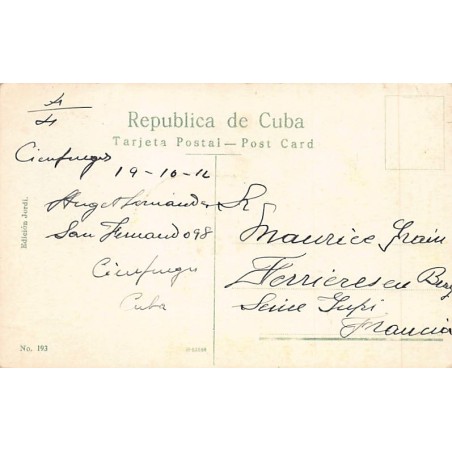 4/4
Republica de Cuba
Tarjeta Postal — Post Card
Cienfuegos
19-10-12
Hugo Fernandez
San Fernando 98
Cienfuegos
Cuba
Sr
Maurice Grain
Ferrieres en Bray
Seine Infri
Francia
Edición Jordi.
No. 193